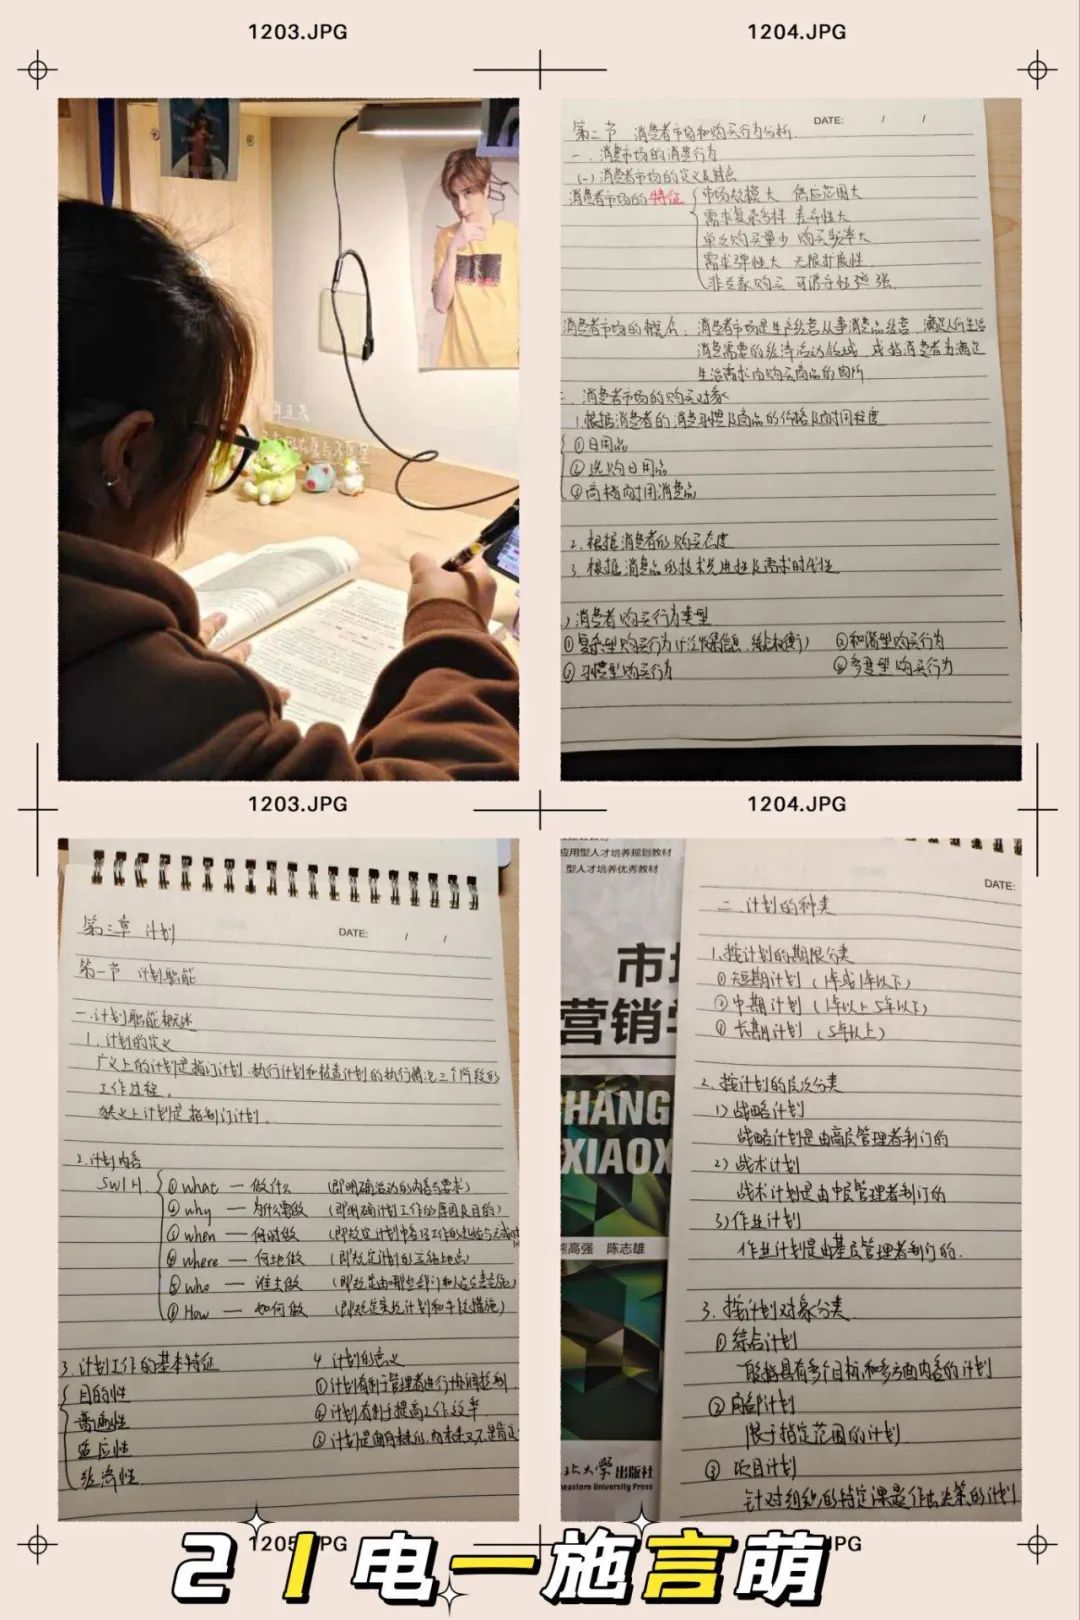 1203.JPG
1204.JPG
第二节 消费者市场和购买行为分析
DATE: / /
一、消费市场的消费行为
(一)消费者市场的定义及特点
消费者市场的特征
市场规模大 供应范围大
需求复杂多样 差异性大
单次购买量少 购买频率大
需求弹性大 无限扩展性
非专家购买 可诱导性强
消费者市场的概念:消费者市场是生产经营从事消费品经营,满足人们生活
消费需要的经济活动领域,或指消费者为满足
生活需求而购买商品的场所
二、消费者市场的购买对象
1.根据消费者的消费习惯及商品的价格及耐用程度
①日用品
②选购日用品
③高档耐用消费品
2.根据消费者的购买态度
3.根据消费品的技术先进性及需求时代性
消费者购买行为类型
①复杂型购买行为(广泛收集信息,综合权衡)
③和谐型购买行为
②习惯型购买行为
④多变型购买行为
1203.JPG
1204.JPG
第三章 计划
DATE: / /
第一节 计划职能
一.计划职能概述
1.计划的定义
广义上的计划是指制订计划.执行计划和检查计划的执行情况三个阶段的
工作过程.
狭义上计划是指制订计划.
2.计划内容
5W1H
①what — 做什么 (即明确活动的内容与要求)
②why — 为什么要做 (即明确计划工作的原因及目的)
③when — 何时做
④where — 何地做 (即规定计划的实施地点)
⑤who — 谁去做 (即规定由哪些部门和人员负责实施)
⑥How — 如何做 (即规定实施计划和手段措施)
3.计划工作的基本特征
目的性
普遍性
适应性
经济性
4.计划的意义
①计划有利于管理者进行协调控制
②计划有利于提高工作效率
应用型人才培养规划教材
型人才培养优秀教材
市场
营销学
HANG
XIAOX
熊高强 陈志雄
大学出版社
eastern University Press
DATE:
二.计划的种类
1.按计划的期限分类
①短期计划(1年或1年以下)
②中期计划(1年以上5年以下)
③长期计划(5年以上)
2.按计划的层次分类
1)战略计划
战略计划是由高层管理者制订的
2)战术计划
战术计划是由中层管理者制订的
3)作业计划
作业计划是由基层管理者制订的.
3.按计划对象分类
①综合计划
一般指具有多个目标和多方面内容的计划
②局部计划
限于指定范围的计划
③项目计划
针对组织的特定课题作出决策的计划
1205.JPG
PG
21电一施言萌